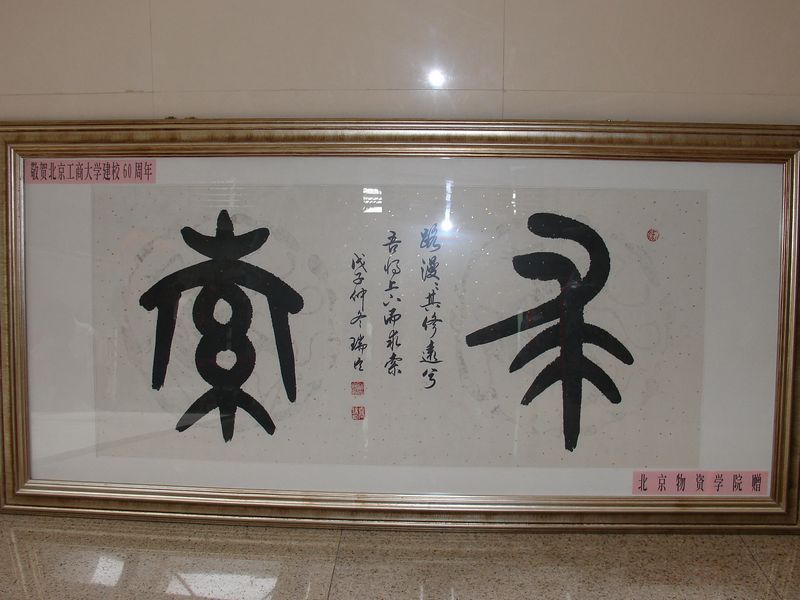 敬贺北京工商大学建校60周年
求
路漫〻其修遠兮
吾将上下而求索
戊子仲冬瑞
索
北京物资学院赠